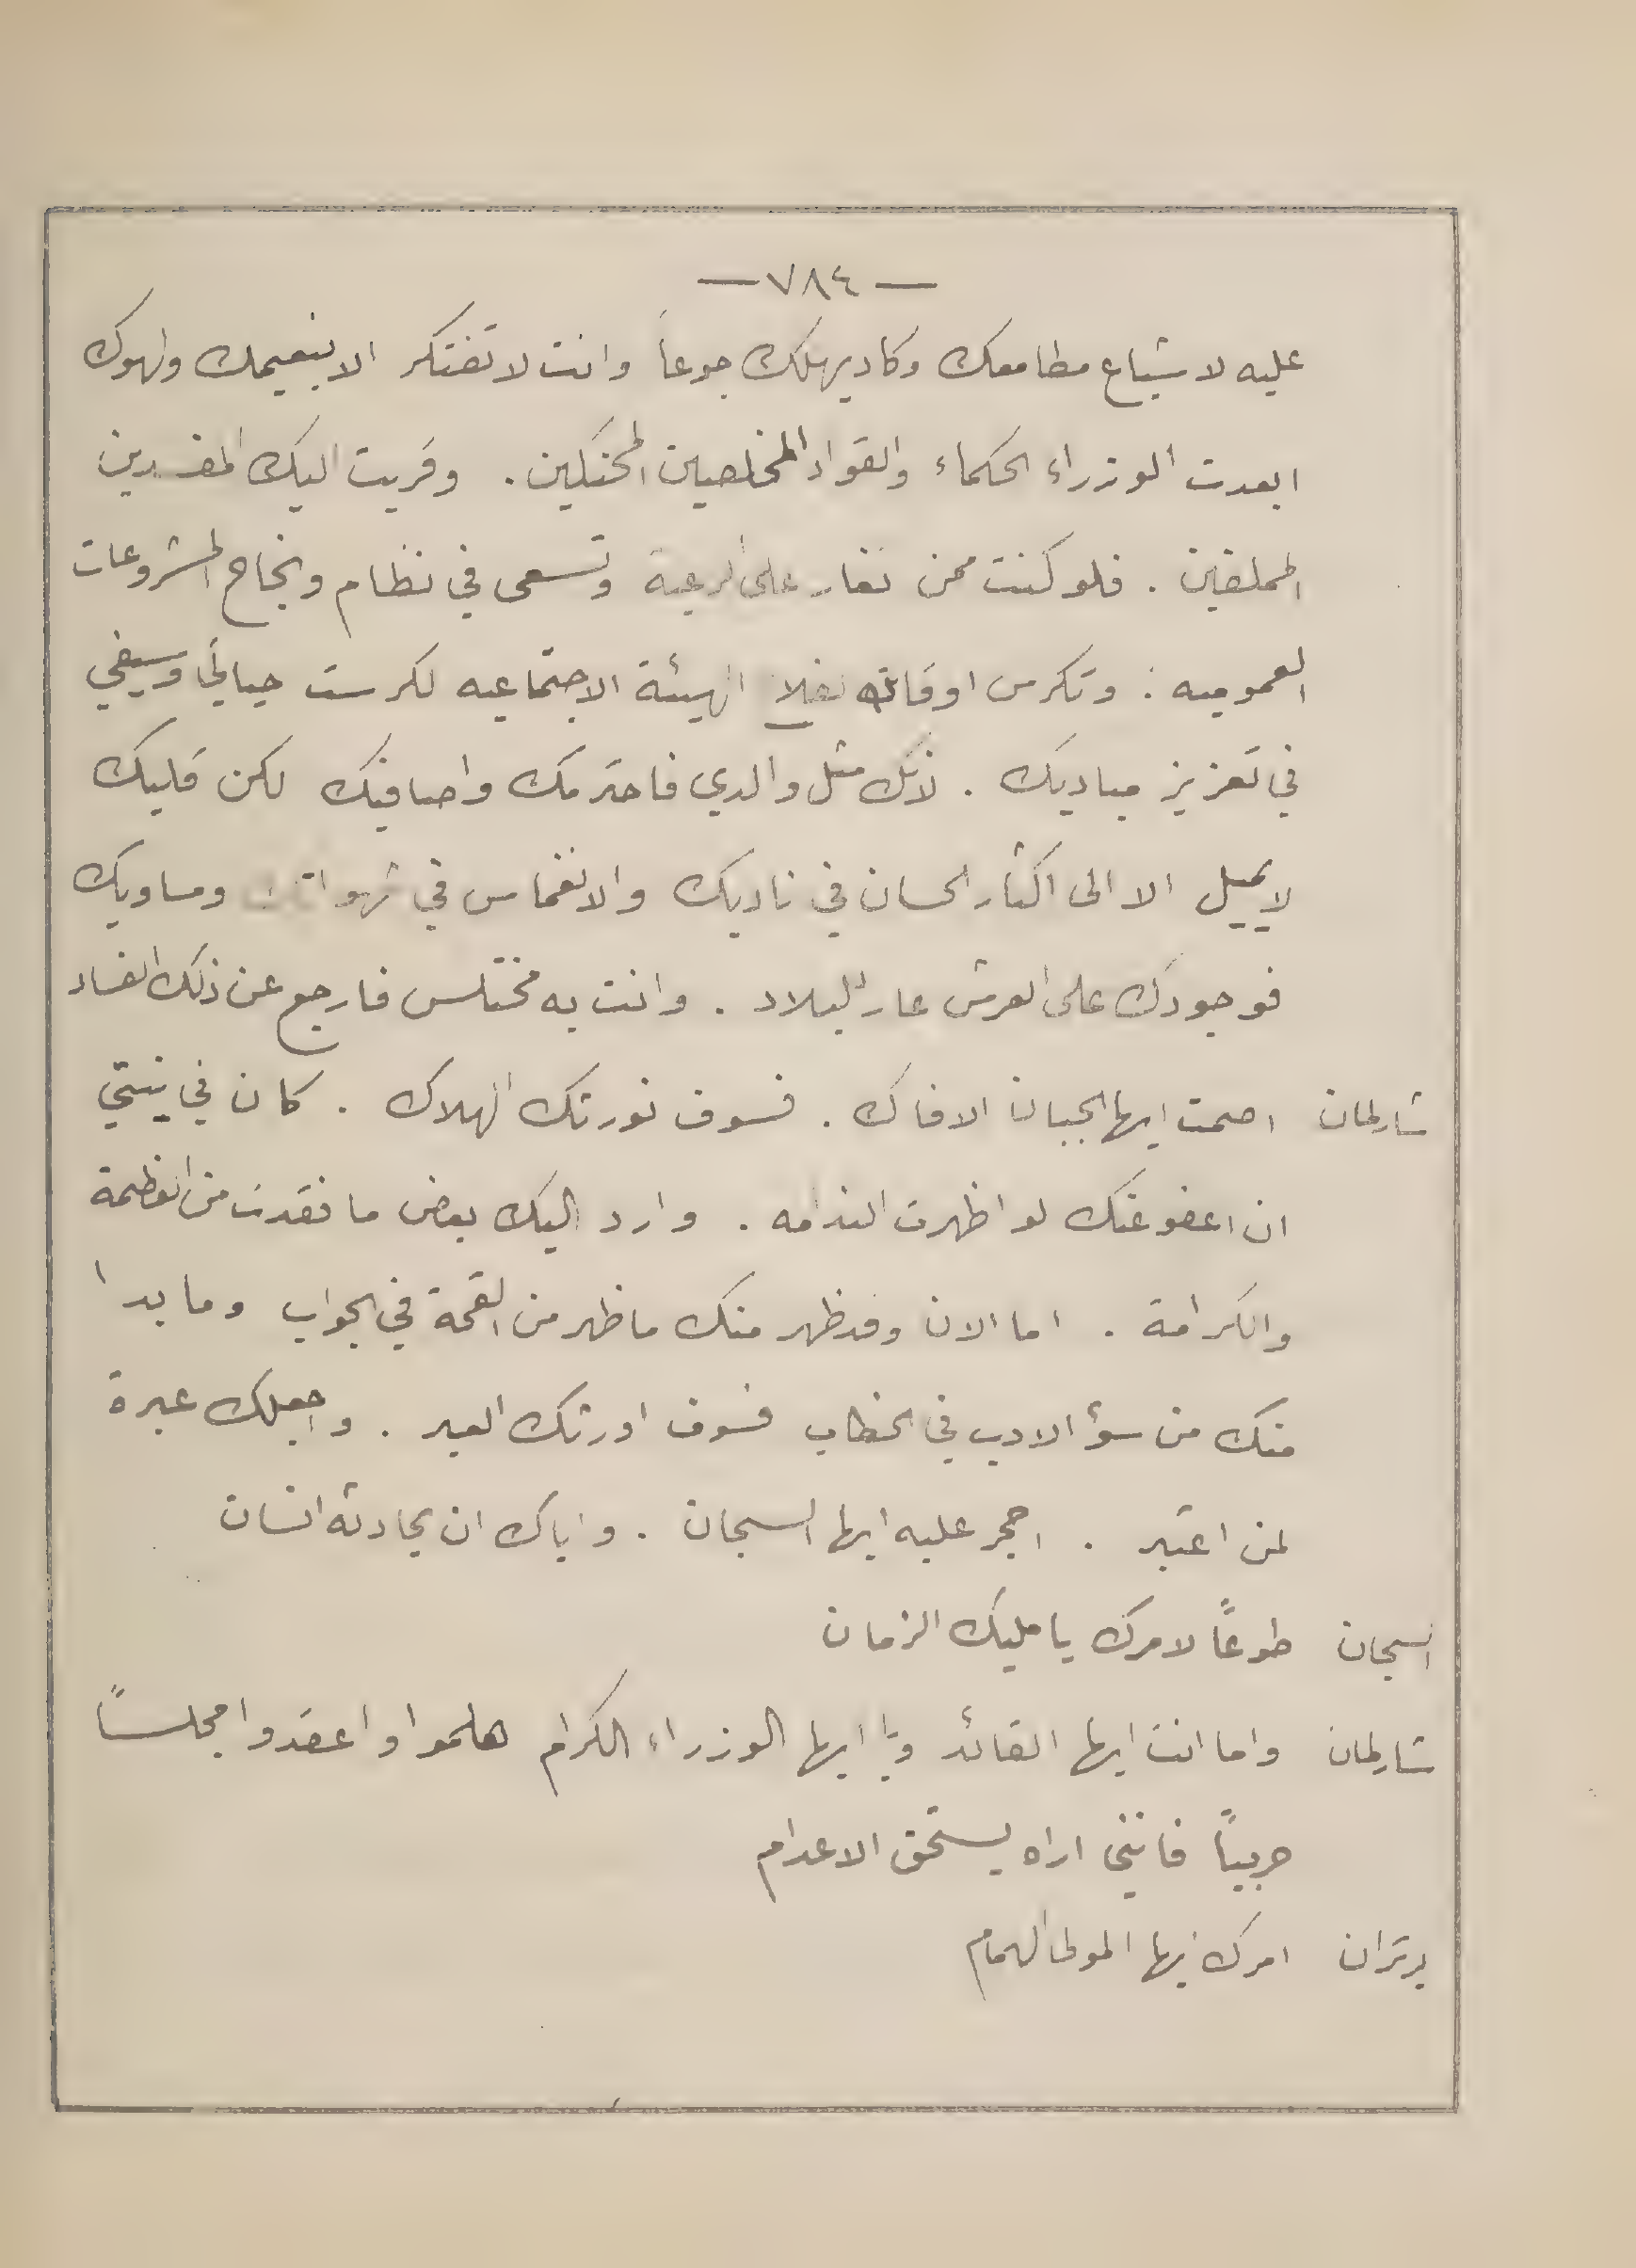 — ٧٨٤ —
عليه لاشباع مطامعك وكاد يهلك جوعاً وانت لا تفتكر الا بنعيمك ولهوك
ابعدت الوزراء الحكماء والقواد المخلصين المحنكين . وقربت اليك المفسدين
المملقين . فلو كنت ممن تغار على الرعية وتسعى في نظام ونجاح المشروعات
العموميه : وتكرس اوقاتك الهيئة الاجتماعيه لكرست حياتي وسيفي
في تعزيز مباديك . لانك مثل والدي فاحترمك واصافيك لكن قلبك
لا يميل الا الى اكثار الحسان في ناديك والانغماس في شهواتك ومساويك
فوجودك على العرش عار للبلاد . وانت به مختلس فارجع عن ذلك الفساد
شارلمان اصمت ايها الجبان الافاك . فسوف نورثك الهلاك . كان في نيتي
ان اعفو عنك لو اظهرت الندامه . وارد اليك بعض ما فقدت من العظمة
والكرامة . اما الان وقد ظهر منك ما ظهر من القحة في الجواب وما بدا
منك من سؤ الادب في الخطاب فسوف اورثك العبر . واجعلك عبرة
لمن اعتبر . احجر عليه ايها السجان . واياك ان يحادثه انسان
السجان طوعاً لامرك يا مليك الزمان
شارلمان واما انت ايها القائد ويا ايها الوزراء الكرام هلموا واعقدوا مجلساً
حربياً فانني اراه يستحق الاعدام
برتران امرك ايها المولى الهمام